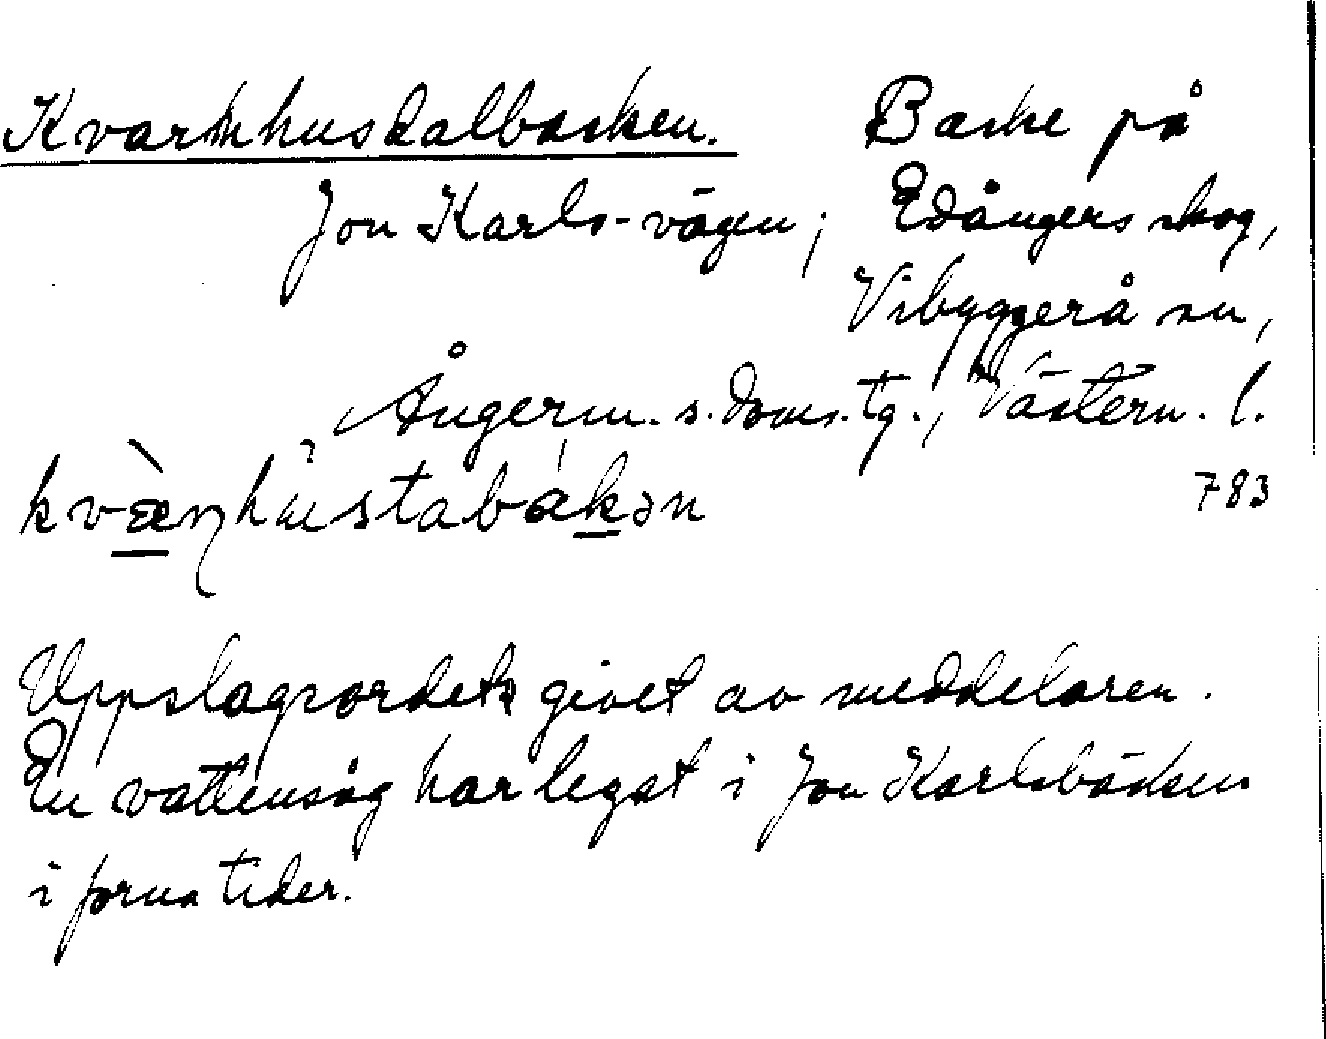 Kvarnhusdalbacken. Backe på
Jon Karls-vägen; Edångers skog,
Vibyggerå sn,
Ångerm. s. doms. tg., Västern. l.
kvæ̀ɳhustabákən 783
Uppslagsordet givet av meddelaren.
En vattensåg har legat i Jon Karlsbäcken
i forna tider.